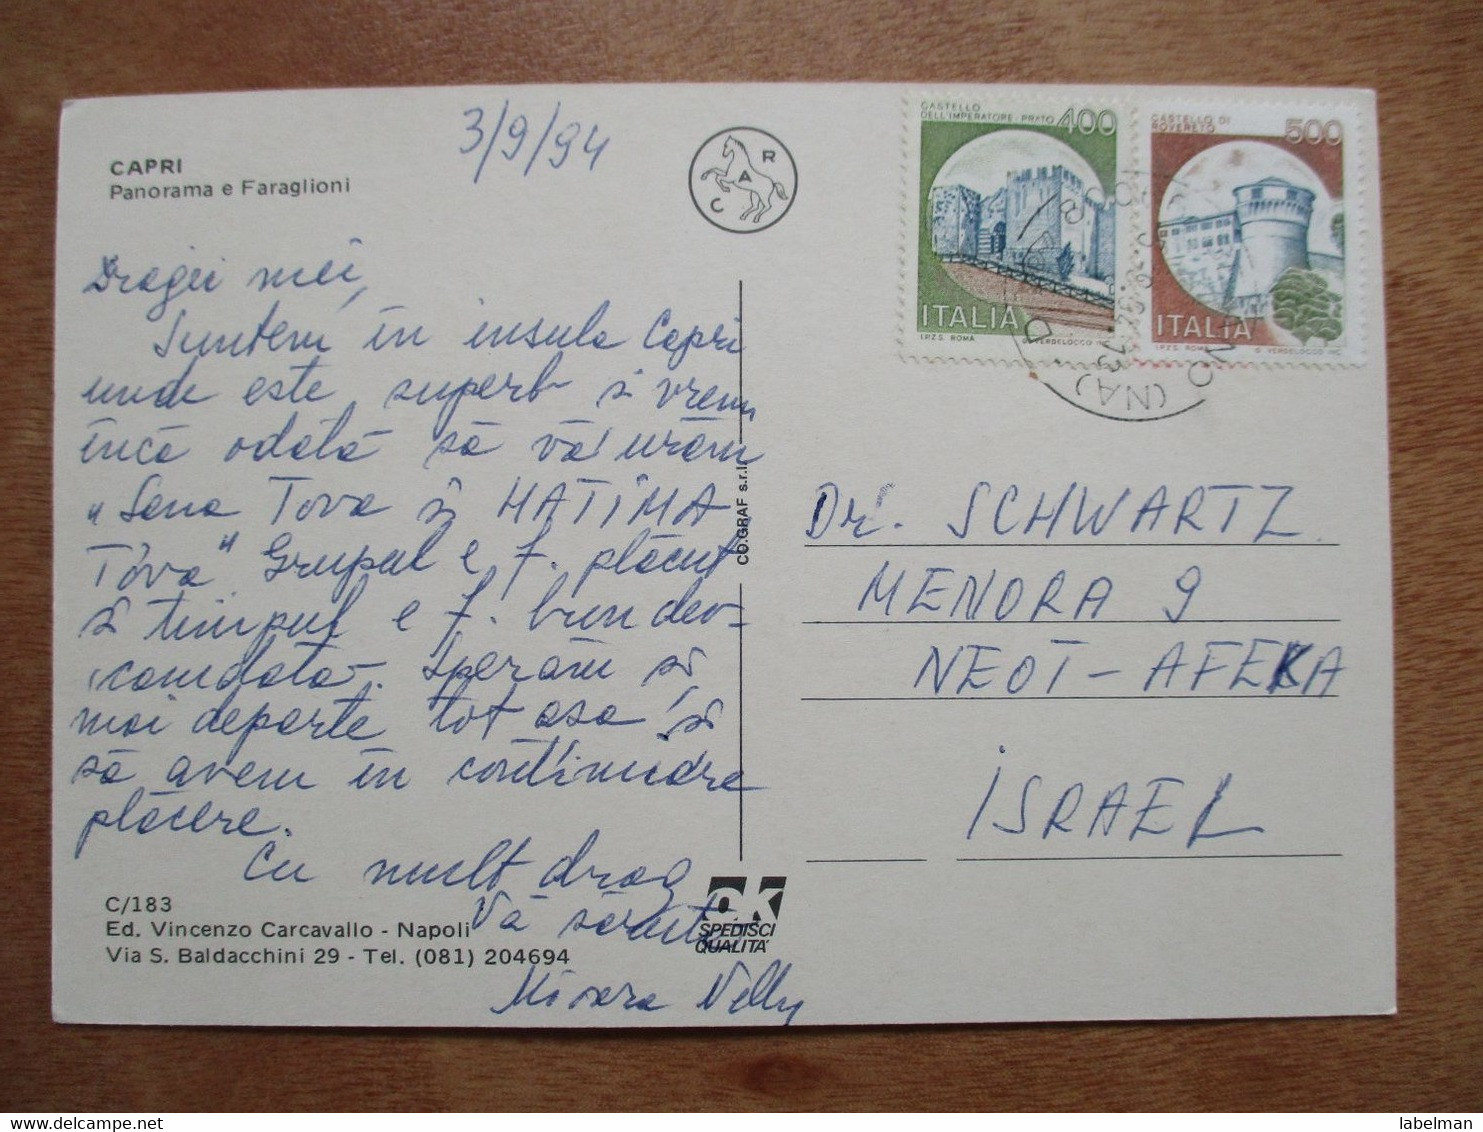 CAPRI
Panorama e Faraglioni
3/9/94
C A R
CASTELLO DELL'IMPERATORE · PRATO 400
ITALIA
I.P.Z.S. ROMA
CASTELLO DI ROVERETO 500
ITALIA
I.P.Z.S. ROMA G. VERSELOCCO INC.
Dragii mei,
Suntem în insula Capri
unde este superb și vrem
încă odată să vă urăm
"Sana Tova și HATIMA
Tova" Grupul e f. plăcut
și timpul e f. bun deo-
camdată. Sperăm și
mai departe tot așa și
să avem în continuare
plăcere.
Cu mult drag
Vă sărută
Nelly
CO.GRAF s.r.l.
Dr. SCHWARTZ
MENORA 9
NEOT-AFEKA
ISRAEL
C/183
Ed. Vincenzo Carcavallo - Napoli
Via S. Baldacchini 29 - Tel. (081) 204694
OK
SPEDISCI
QUALITA'
labelman
www.delcampe.net